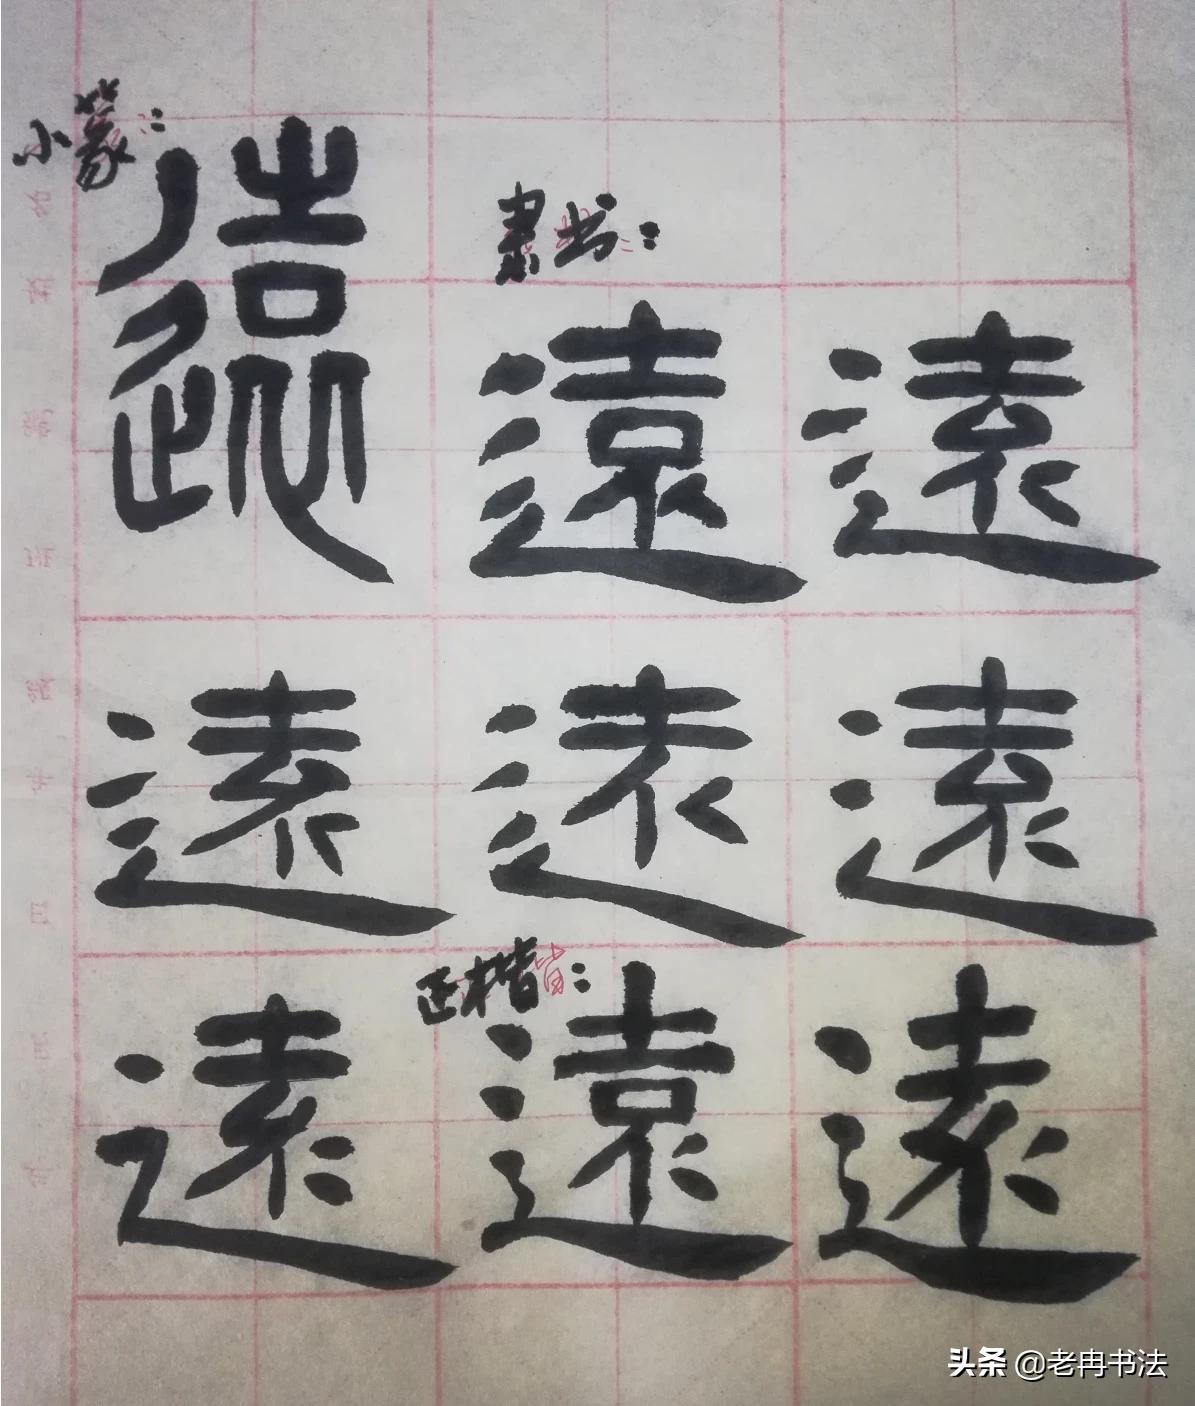 小篆：
隶书：
遠 遠 遠
遠 遠 遠
正楷：
遠 遠 遠
头条 @老冉书法